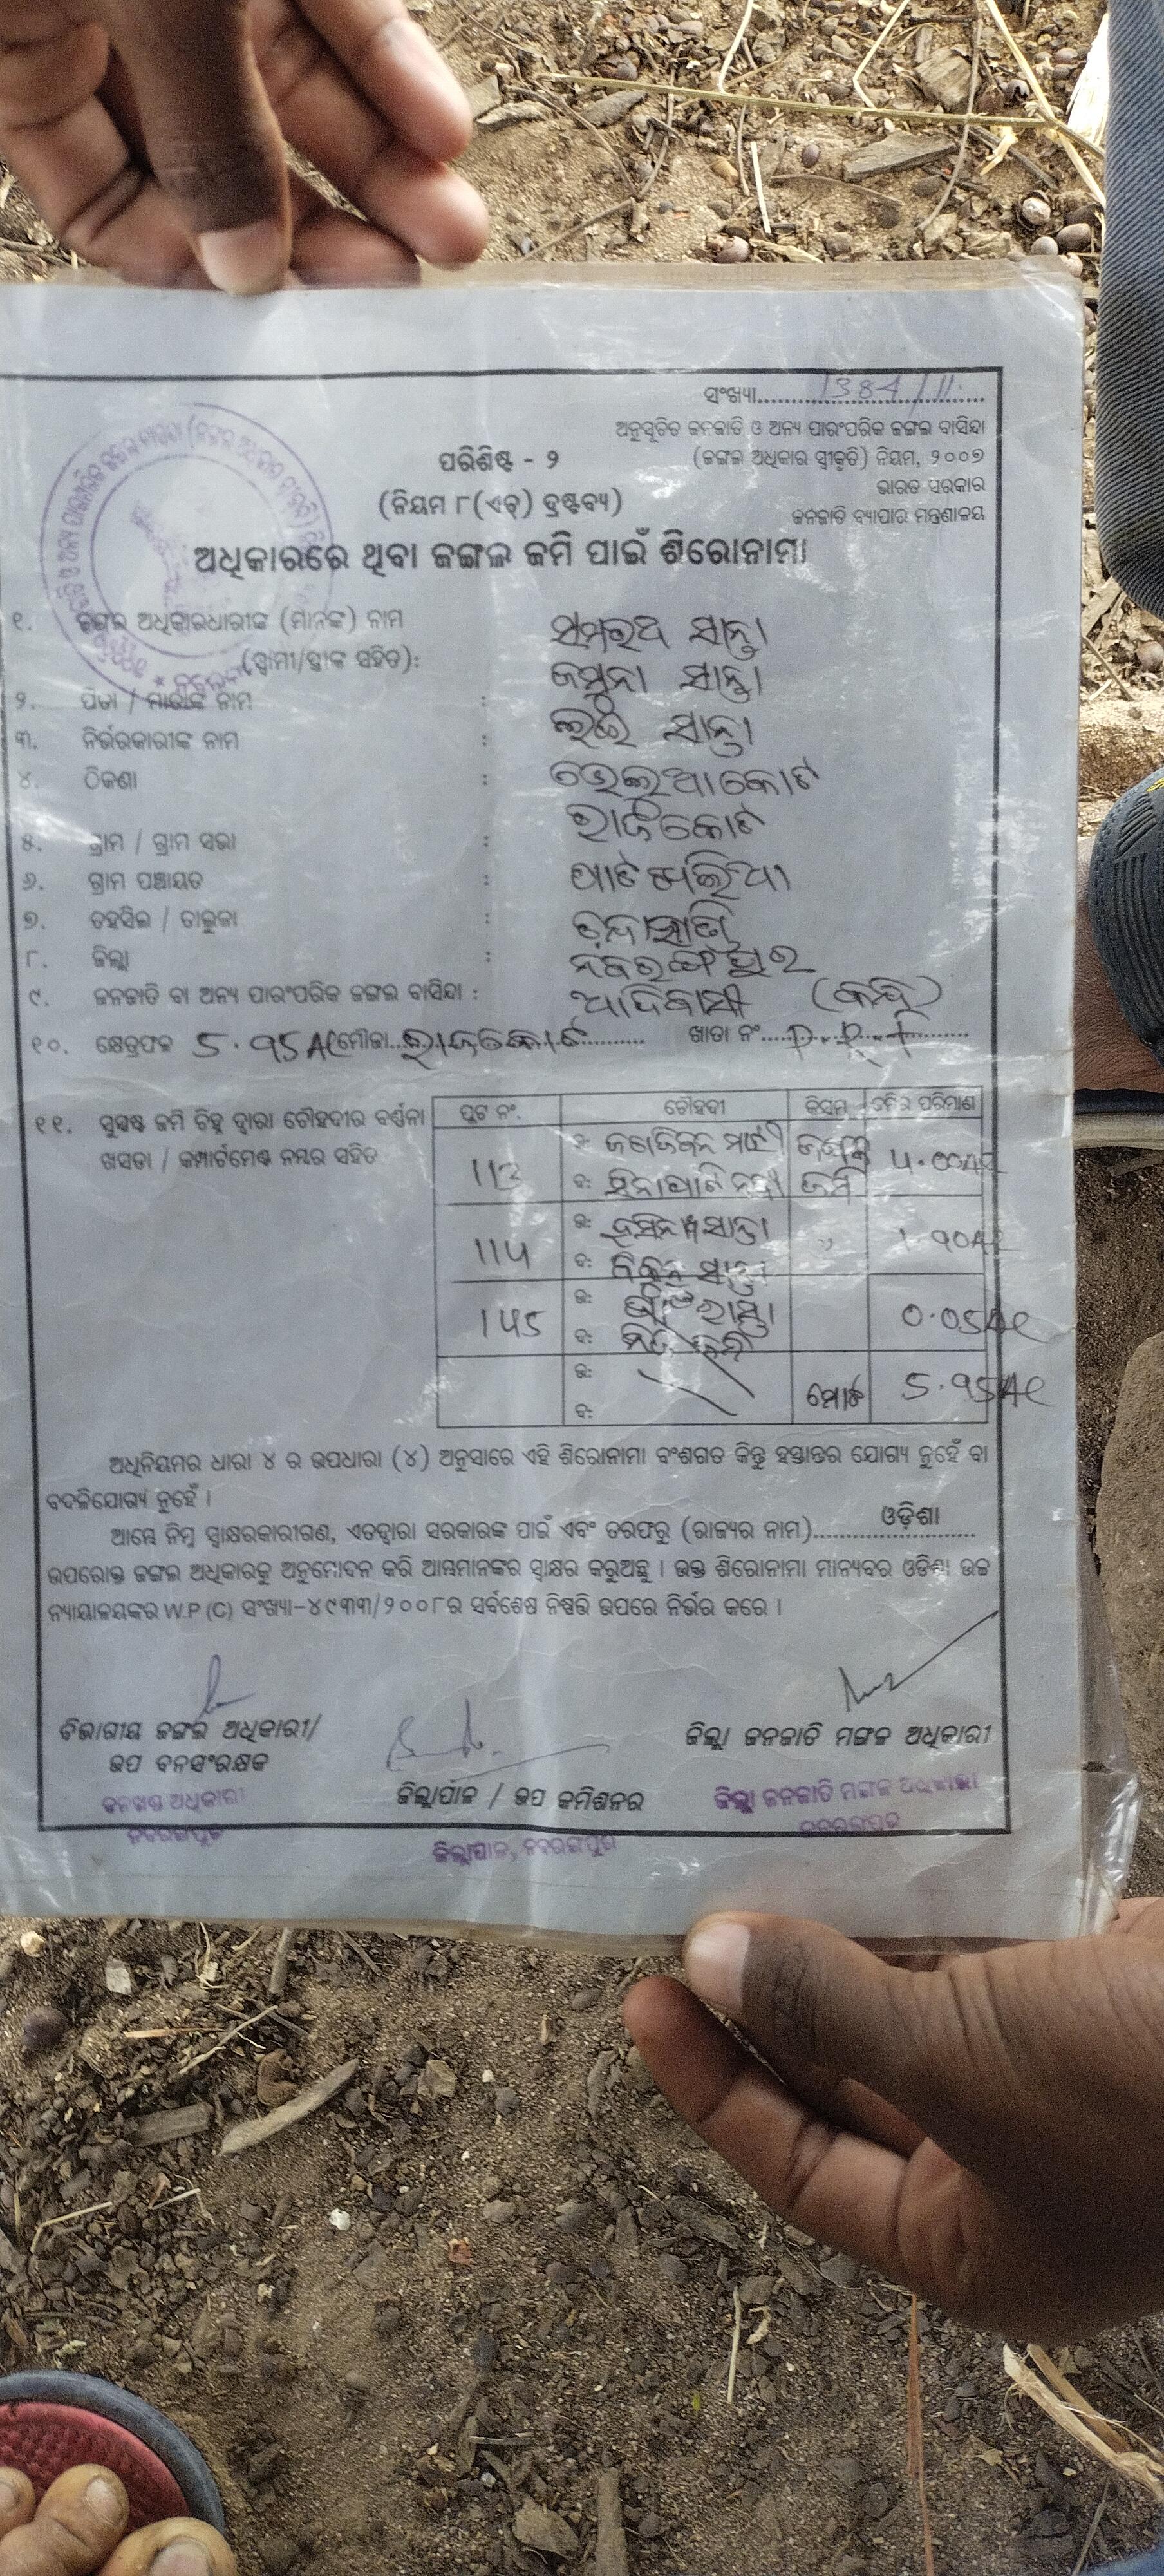 ସଂଖ୍ୟା..........1384/11..........
ଅନୁସୂଚିତ ଜନଜାତି ଓ ଅନ୍ୟ ପାରଂପରିକ ଜଙ୍ଗଲ ବାସିନ୍ଦା
(ଜଙ୍ଗଲ ଅଧିକାର ସ୍ୱୀକୃତି) ନିୟମ, ୨୦୦୭
ଭାରତ ସରକାର
ଜନଜାତି ବ୍ୟାପାର ମନ୍ତ୍ରଣାଳୟ
ପରିଶିଷ୍ଟ - ୨
(ନିୟମ ୮(ଏଚ୍) ଦ୍ରଷ୍ଟବ୍ୟ)
ଅଧିକାରରେ ଥିବା ଜଙ୍ଗଲ ଜମି ପାଇଁ ଶିରୋନାମା
୧. ଜଙ୍ଗଲ ଅଧିକାରଧାରୀଙ୍କ (ମାନଙ୍କ) ନାମ ସମରଥ ସାନ୍ତା
(ସ୍ୱାମୀ/ସ୍ତ୍ରୀଙ୍କ ସହିତ): ଜମୁନା ସାନ୍ତା
୨. ପିତା / ମାତାଙ୍କ ନାମ : ସାନ୍ତା
୩. ନିର୍ଭରକାରୀଙ୍କ ନାମ :
୪. ଠିକଣା : ରାଜକୋଟ
୫. ଗ୍ରାମ / ଗ୍ରାମ ସଭା :
୬. ଗ୍ରାମ ପଞ୍ଚାୟତ :
୭. ତହସିଲ / ତାଲୁକା : ଚନ୍ଦାହାଣ୍ଡି
୮. ଜିଲ୍ଲା : ନବରଙ୍ଗପୁର
୯. ଜନଜାତି ବା ଅନ୍ୟ ପାରଂପରିକ ଜଙ୍ଗଲ ବାସିନ୍ଦା : ଆଦିବାସୀ
୧୦. କ୍ଷେତ୍ରଫଳ 5.95 Ac ମୌଜା..ରାଜକୋଟ.......... ଖାତା ନଂ
୧୧. ସୁସ୍ପଷ୍ଟ ଜମି ଚିହ୍ନ ଦ୍ୱାରା ଚୌହଦୀର ବର୍ଣ୍ଣନା
ଖସଡା / କମ୍ପାର୍ଟମେଣ୍ଟ ନମ୍ବର ସହିତ
ପ୍ଲଟ ନଂ. ଚୌହଦୀ କିସମ ଜମିର ପରିମାଣ
113 ଉ: ଜଙ୍ଗଲ 4.00Ac
ଦ: ଜମି
114 ଉ: ସାନ୍ତା ,, 1.90Ac
ଦ: ସାନ୍ତା
145 ଉ: ରାସ୍ତା 0.05Ac
ଦ: ନିଜ ଜମି
ଉ: ମୋଟ 5.95Ac
ଦ:
ଅଧିନିୟମର ଧାରା ୪ ର ଉପଧାରା (୪) ଅନୁସାରେ ଏହି ଶିରୋନାମା ବଂଶଗତ କିନ୍ତୁ ହସ୍ତାନ୍ତର ଯୋଗ୍ୟ ନୁହେଁ ବା
ବଦଳିଯୋଗ୍ୟ ନୁହେଁ ।
ଆମ୍ଭେ ନିମ୍ନ ସ୍ୱାକ୍ଷରକାରୀଗଣ, ଏତଦ୍ୱାରା ସରକାରଙ୍କ ପାଇଁ ଏବଂ ତରଫରୁ (ରାଜ୍ୟର ନାମ)..........ଓଡ଼ିଶା..........
ଉପରୋକ୍ତ ଜଙ୍ଗଲ ଅଧିକାରକୁ ଅନୁମୋଦନ କରି ଆମ୍ଭମାନଙ୍କର ସ୍ୱାକ୍ଷର କରୁଅଛୁ । ଉକ୍ତ ଶିରୋନାମା ମାନ୍ୟବର ଓଡିଶା ଉଚ୍ଚ
ନ୍ୟାୟାଳୟଙ୍କର W.P (C) ସଂଖ୍ୟା-୪୯୩୩/୨୦୦୮ର ସର୍ବଶେଷ ନିଷ୍ପତ୍ତି ଉପରେ ନିର୍ଭର କରେ ।
ବିଭାଗୀୟ ଜଙ୍ଗଲ ଅଧିକାରୀ/
ଉପ ବନସଂରକ୍ଷକ
ଜିଲ୍ଲାପାଳ / ଉପ କମିଶନର
ଜିଲ୍ଲା ଜନଜାତି ମଙ୍ଗଳ ଅଧିକାରୀ
ବନଖଣ୍ଡ ଅଧିକାରୀ
ନବରଙ୍ଗପୁର
ଜିଲ୍ଲାପାଳ, ନବରଙ୍ଗପୁର
ଜିଲ୍ଲା ଜନଜାତି ମଙ୍ଗଳ ଅଧିକାରୀ
ନବରଙ୍ଗପୁର